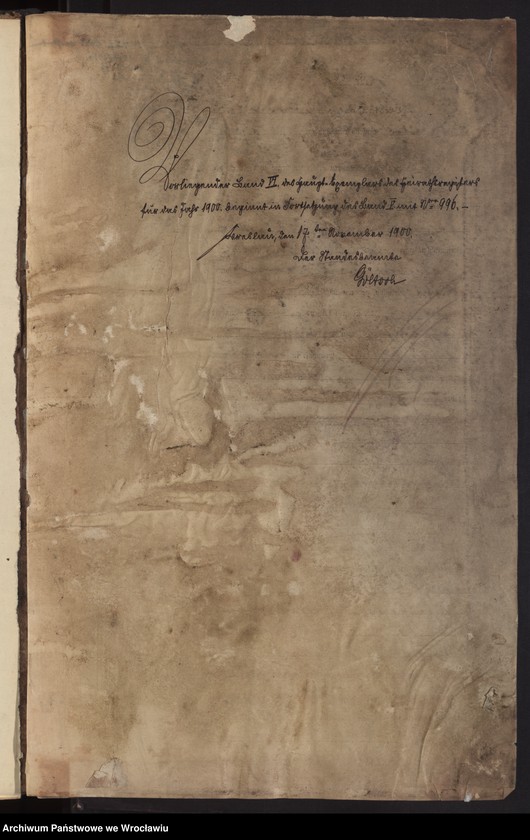 Vorliegender Band VI. des Haupt-Exemplars des Heirathsregisters
für das Jahr 1900. beginnt in Fortsetzung des Band V mit Nro 996. –
Breslau, den 17 ten November 1900.
Der Standesbeamte
Archiwum Państwowe we Wrocławiu